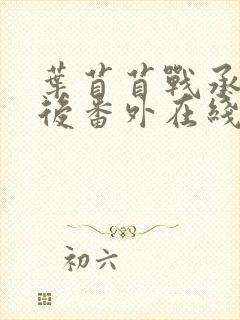 葉苜苜戰承
後番外在綫
初六